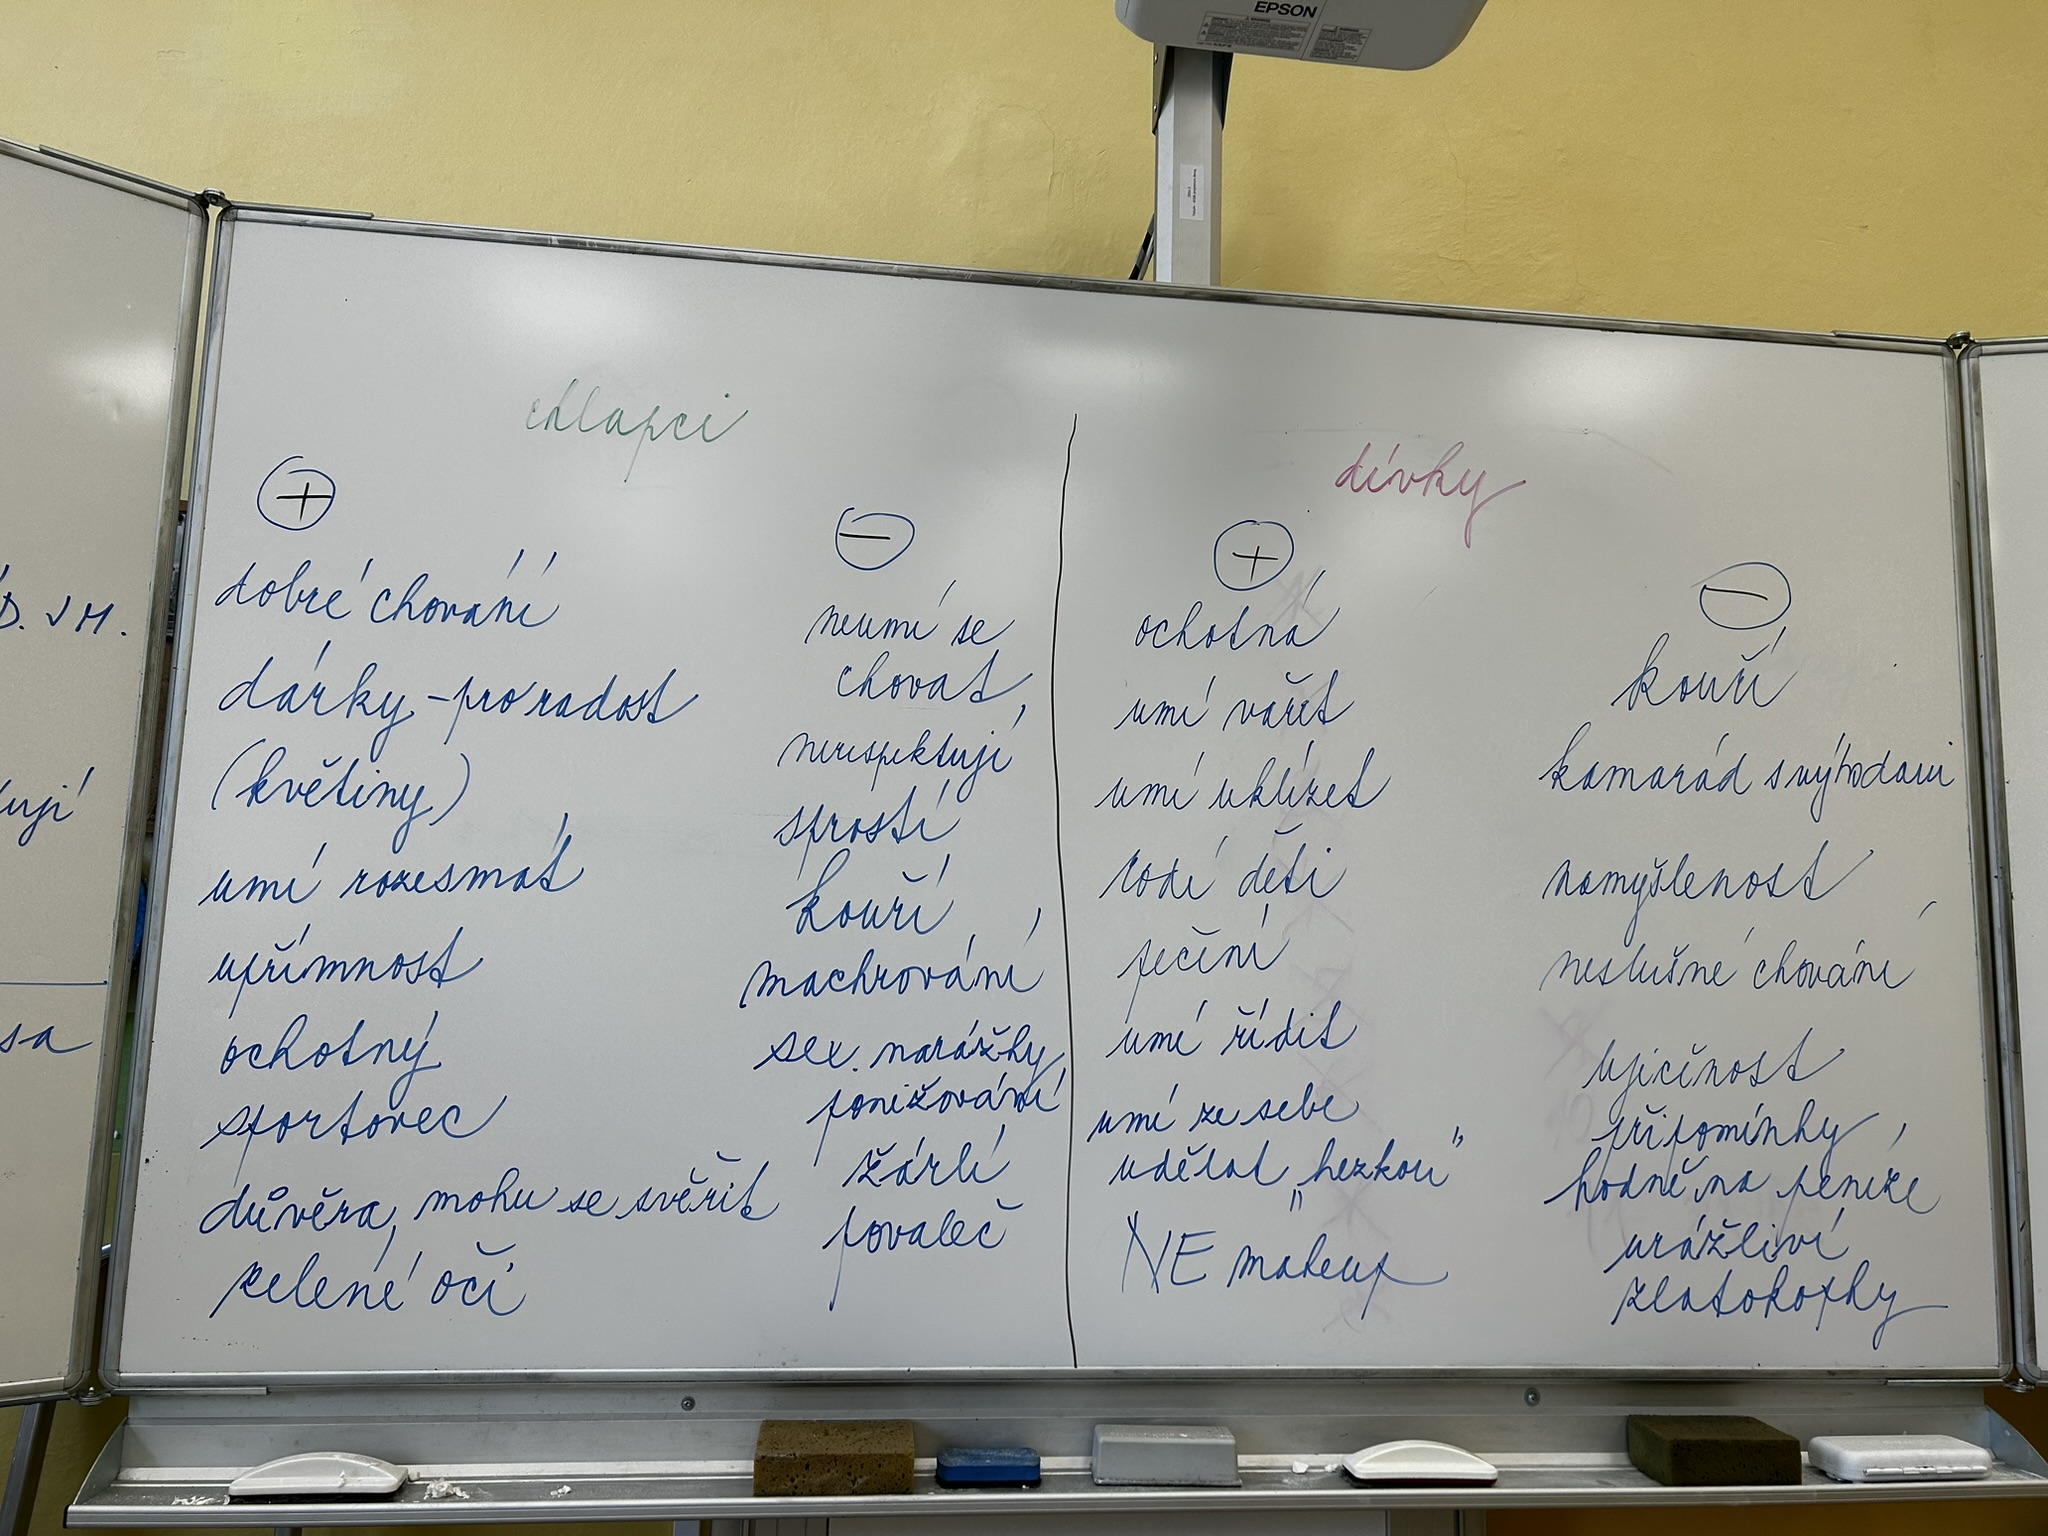 EPSON
chlapci
+
dobré chování
dárky - pro radost
(květiny)
umí rozesmát
upřímnost
ochotný
sportovec
důvěra, mohu se svěřit
zelené oči
−
neumí se
chovat,
nerespektují
sprostí
kouří
machrování
sex. narážky
ponižování
žárlí
povaleč
dívky
+
ochotná
umí vařit
umí uklízet
rodí děti
pečení
umí řídit
umí ze sebe
udělat "hezkou"
NE makeup
−
kouří
kamarád s výhodami
namyšlenost
neslušné chování
ujicínost
připomínky,
hodně na peníze
urážliví
zlatokopky
D. J M.
ují
sa